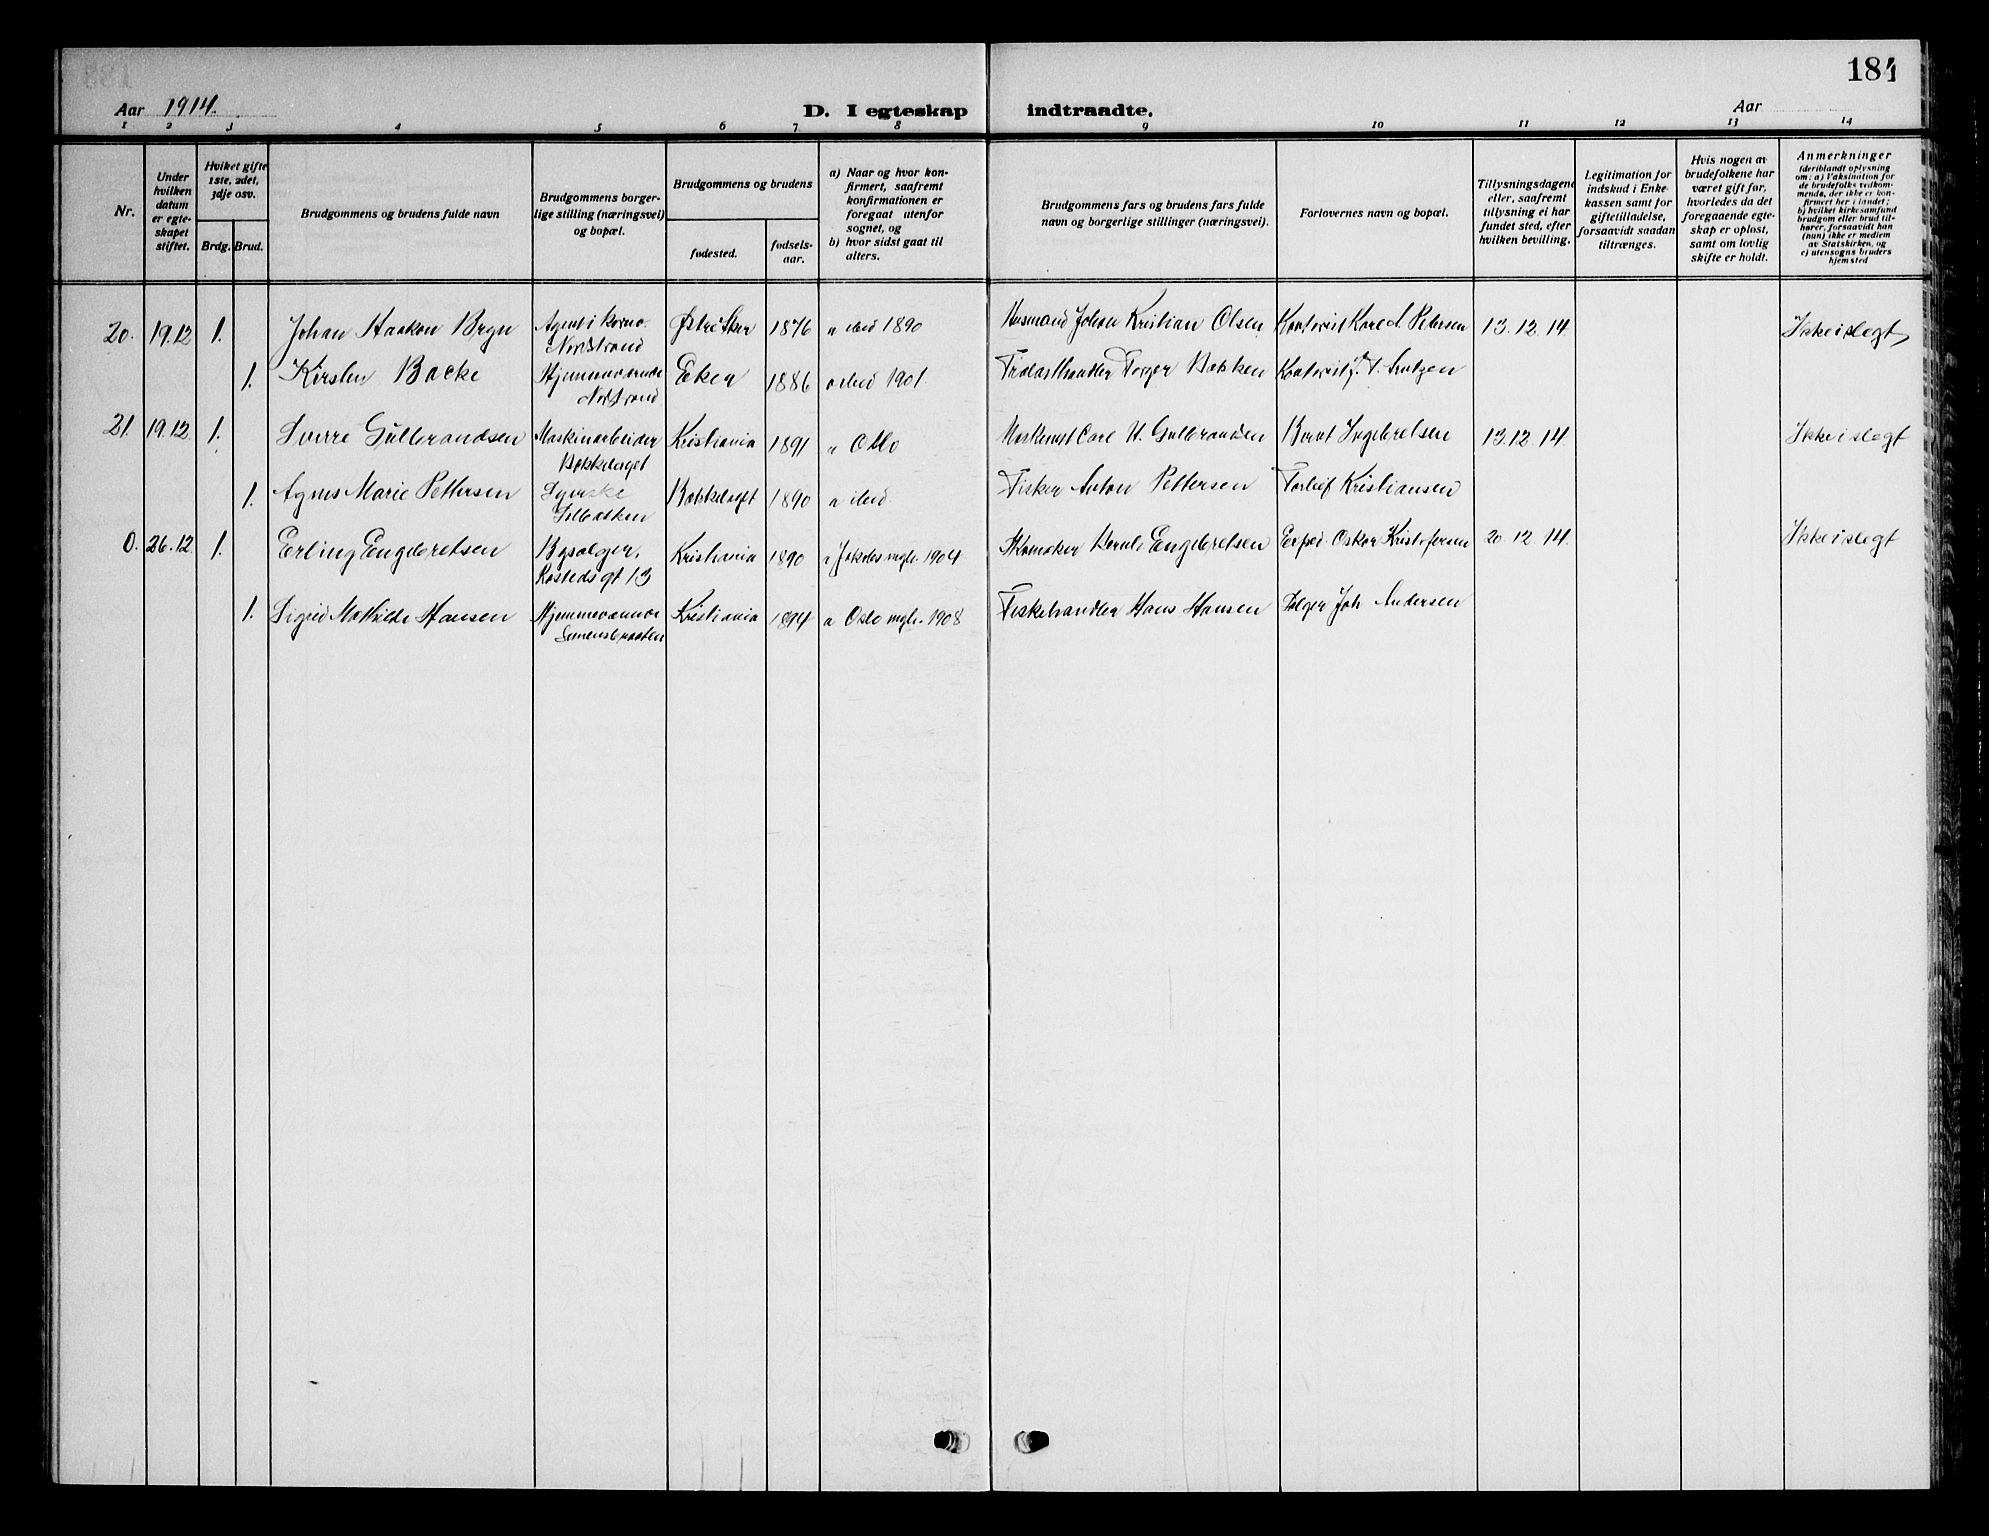 184
Aar 1914.
D. I egteskap indtraadte.
Aar
1 2 3 4 5 6 7 8 9 10 11 12 13 14
Nr.
Under hvilken datum er egteskapet stiftet.
Hviket gifte 1ste, 2det, 3dje osv.
Brdg. Brud.
Brudgommens og brudens fulde navn
Brudgommens borgerlige stilling (næringsvei) og bopæl.
Brudgommens og brudens
fødested.
fødselsaar.
a) Naar og hvor konfirmert, saafremt konfirmationen er foregaat utenfor sognet, og
b) hvor sidst gaat til alters.
Brudgommens fars og brudens fars fulde navn og borgerlige stillinger (næringsvei).
Forlovernes navn og bopæl.
Tillysningsdagene eller, saafremt tillysning ei har fundet sted, efter hvilken bevilling.
Legitimation for indskud i Enkekassen samt for giftetilladelse, forsaavidt saadan tiltrænges.
Hvis nogen av brudefolkene har været gift før, hvorledes da det foregaaende egteskap er opløst, samt om lovlig skifte er holdt.
Anmerkninger
(deriblandt oplysning om: a) Vaksination for de brudefolks vedkommende, der ikke er konfirmert her i landet;
b) hvilket kirkesamfund brudgom eller brud tilhører, forsaavidt han (hun) ikke er medlem av Statskirken, og
c) utensogns bruders hjemsted
20. 19.12 1. Johan Haakon Bryn Agent i Nordstrand Østre Aker 1876 a ibid 1890 Husmand Johan Kristian Olsen Kontorist Karl A. Petersen 13.12.14. Ikke i slegt
1. Kirsten Bakke Hjemmeværende Nordstrand Eker 1886 a ibid 1901. Trælasthandler Torger Bakken Kontorist 
21. 19.12 1. Sverre Gulbrandsen Maskinarbeider Bækkelaget Kristiania 1891 a Oslo Maskinist Carl H. Gulbrandsen Bernt Ingebretsen 13.12.14 Ikke i slegt
1. Agnes Marie Pettersen Syerske Bækkelaget 1890 a ibid. Fisker Anton Pettersen Torleif Kristiansen
0. 26.12 1. Erling Engebretsen Rostedsgt 13 Kristiania 1890 a Jakobs mgh. 1904 Skomaker Bernt Engebretsen Exped. Oskar Kristofersen 20.12.14. Ikke i slegt
1. Sigrid Mathilde Hansen Hjemmeværende Simensbraaten Kristiania 1894 a Oslo mgh. 1908 Fiskehandler Hans Hansen Selger Joh Andersen